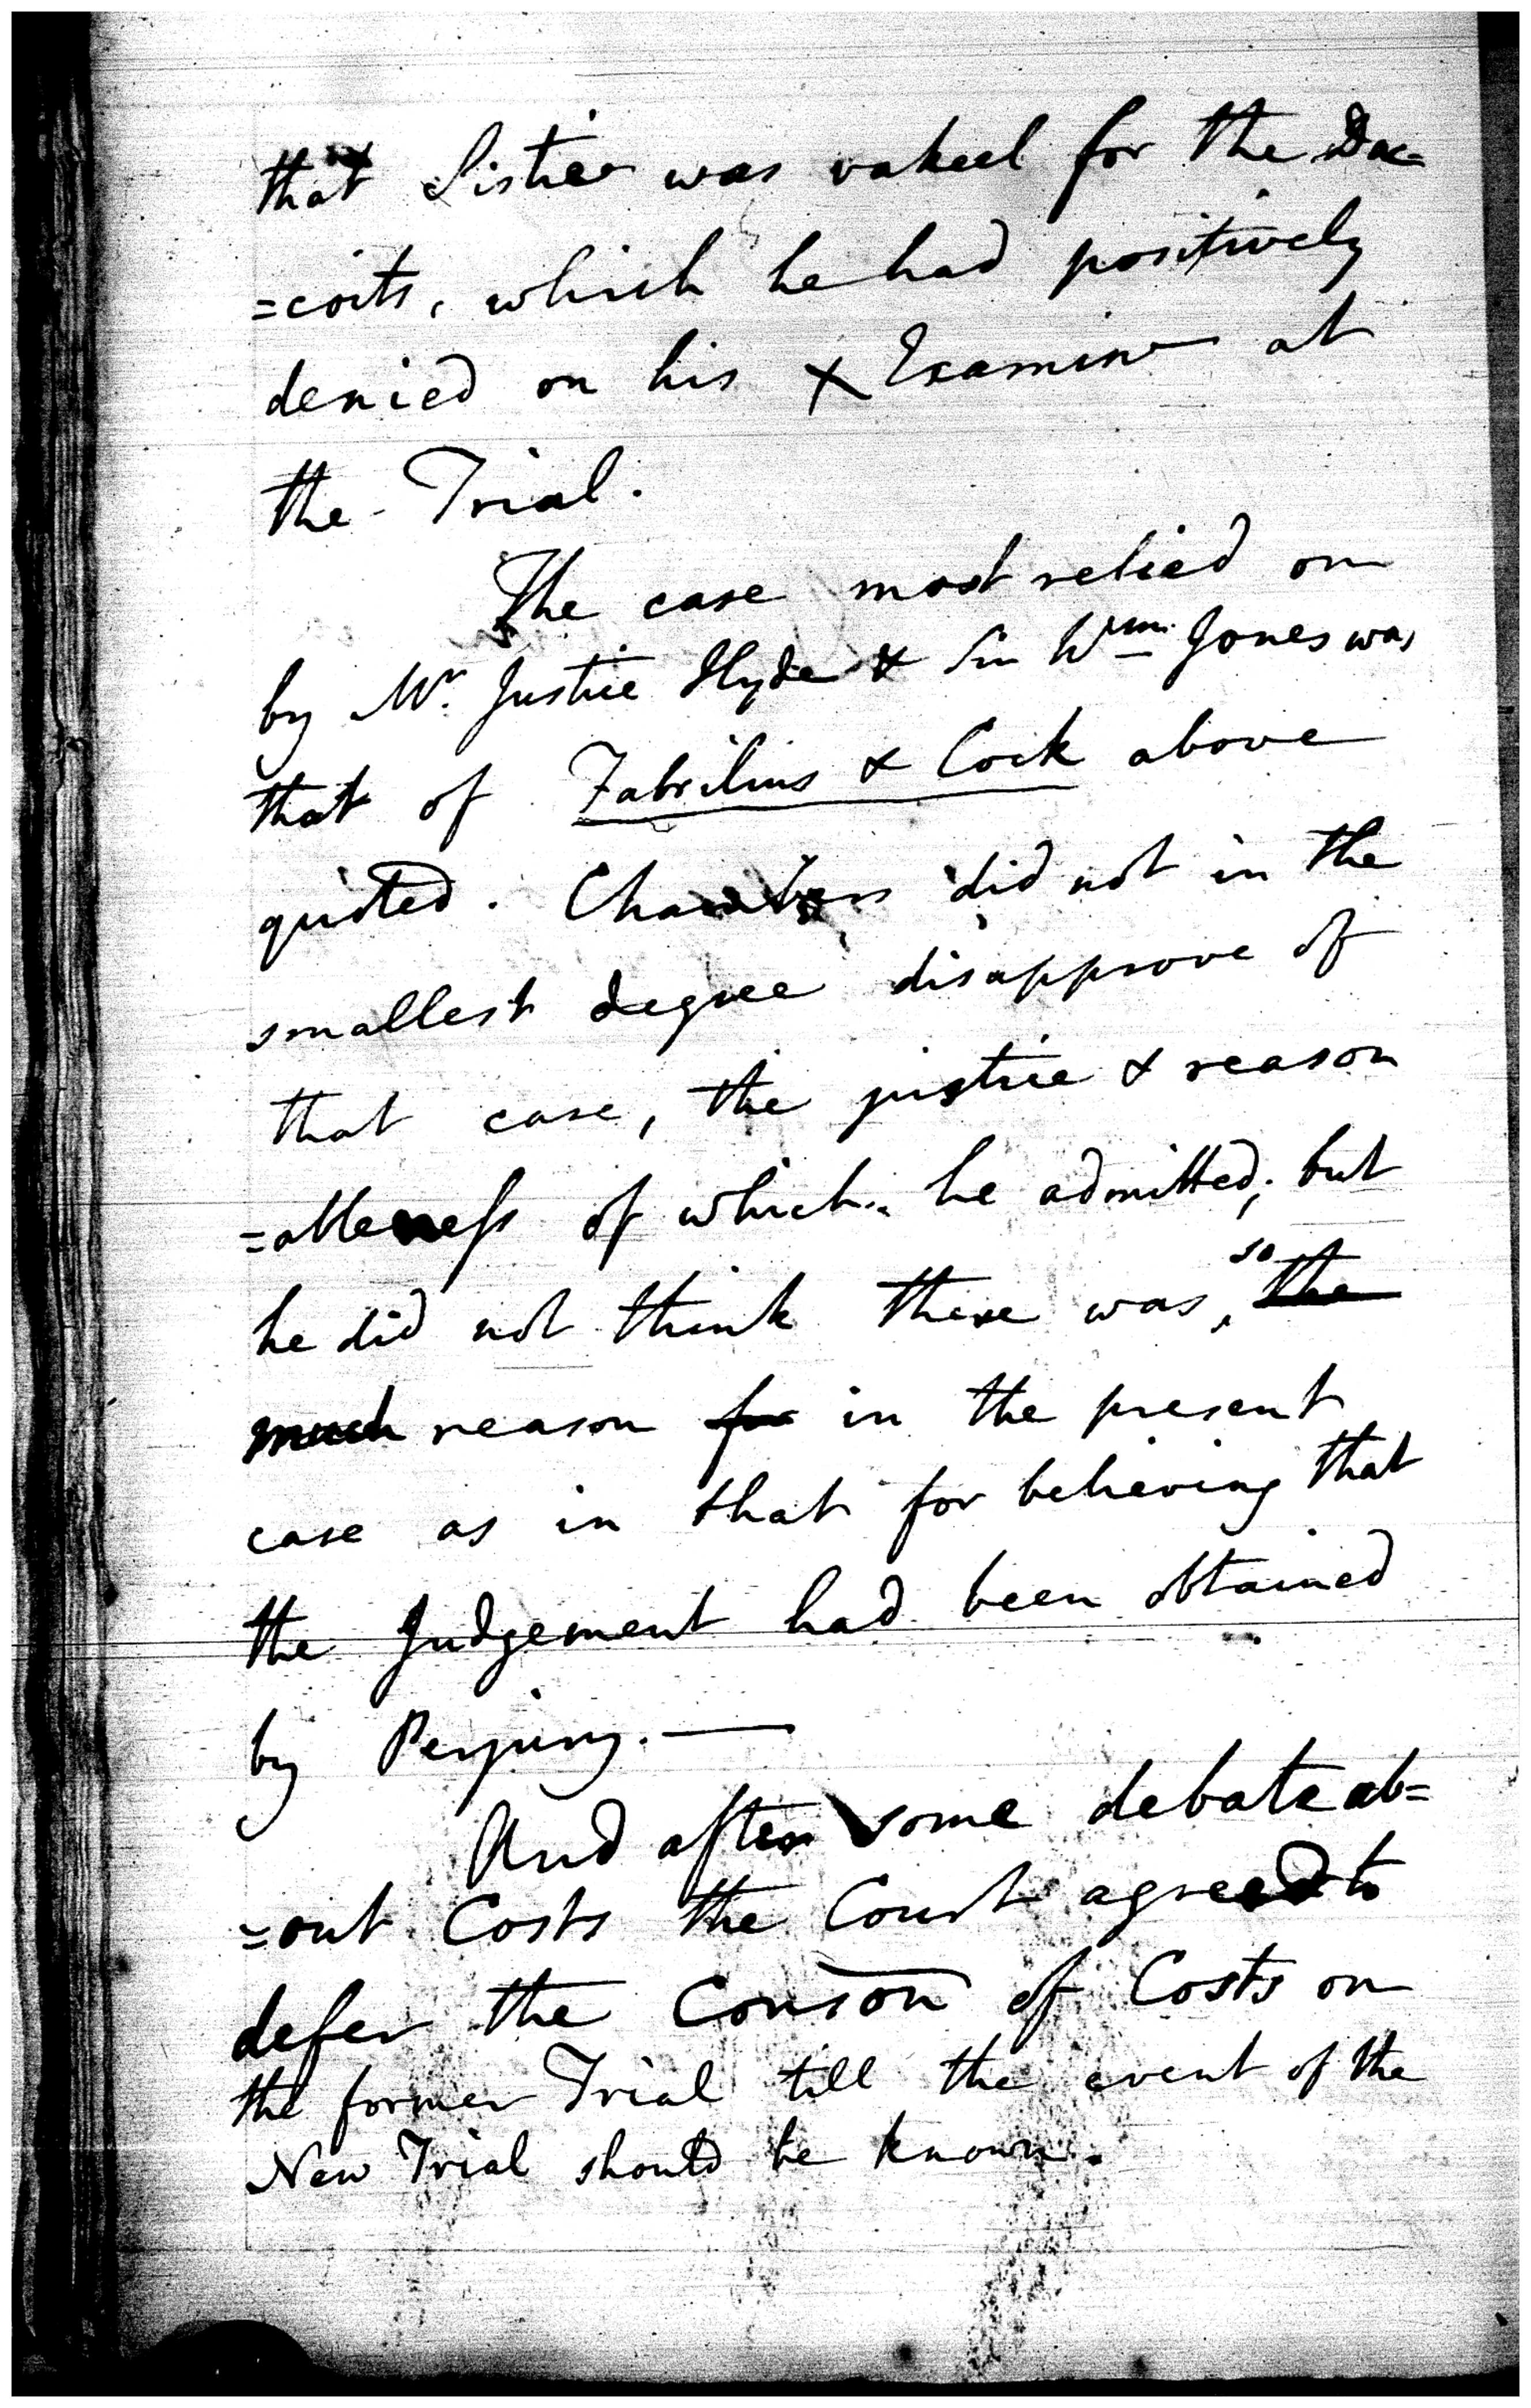 that Sistier was vakeel for the Dac=
=coits, which he had positively
denied on his X Examinn at
the Trial.
The case most relied on
by Mr. Justice Hyde & Sir Wm. Jones was
that of Fabrilius & Cock above
quoted. Chambers did not in the
smallest degree disapprove of
that case, the justice & reason
=ableness of which he admitted; but
he did not think there was, so the
much reason for in the present
case as in that for believing that
the Judgement had been obtained
by Perjury.—
And after some debate ab=
=out Costs the Court agreed to
defer the Conson of Costs on
the former Trial till the event of the
New Trial should be known.